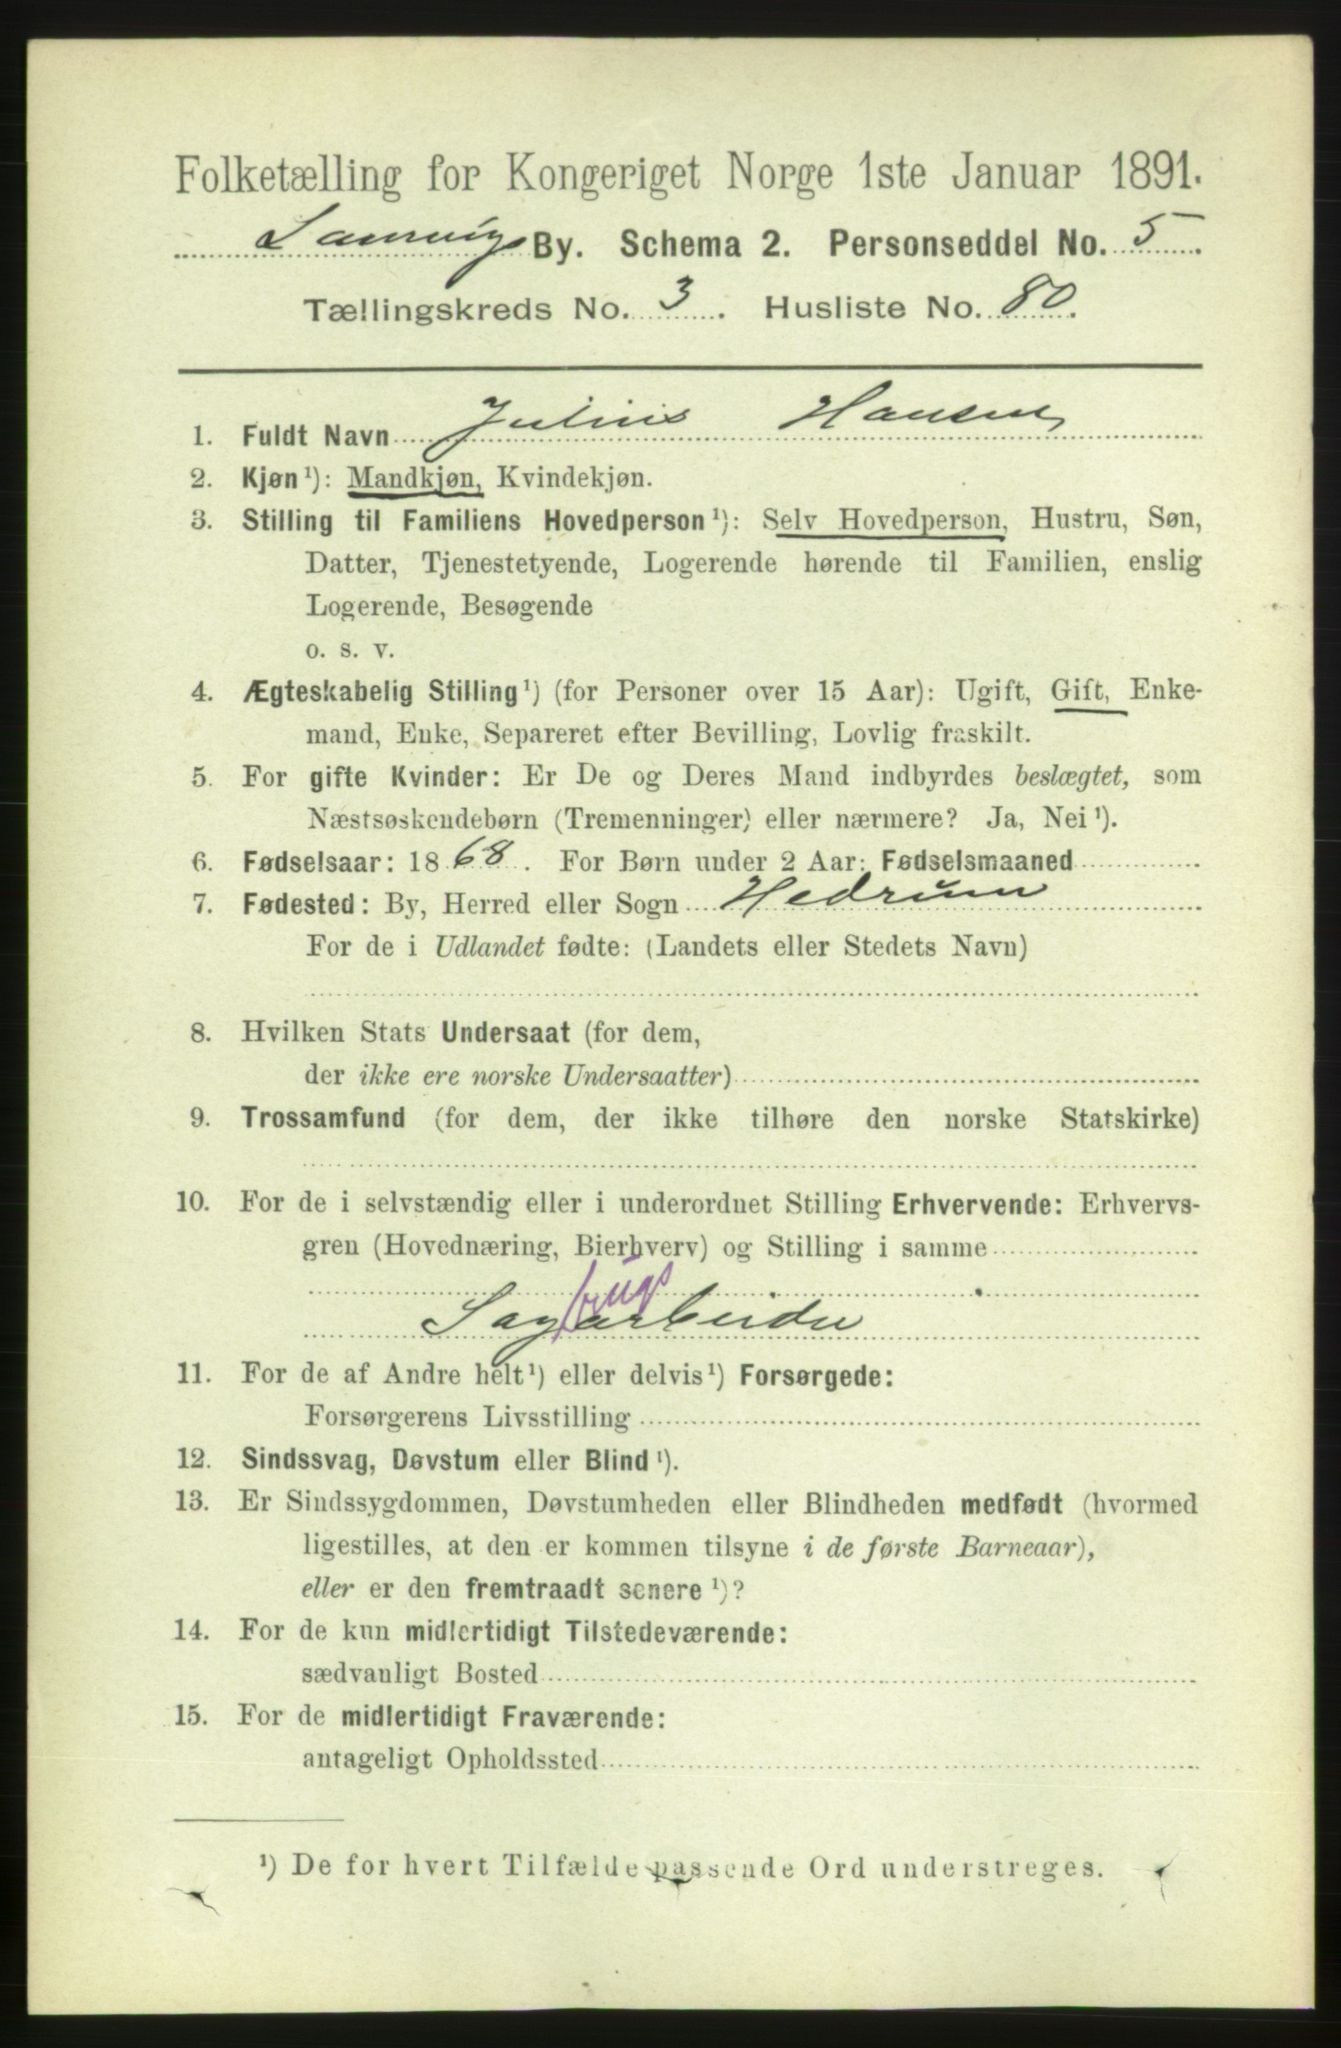 Folketælling for Kongeriget Norge 1ste Januar 1891.
Laurvigs By. Schema 2. Personseddel No. 5.
Tællingskreds No. 3. Husliste No. 80.
1. Fuldt Navn Julius Hansen
2. Kjøn ¹): Mandkjøn, Kvindekjøn.
3. Stilling til Familiens Hovedperson ¹): Selv Hovedperson, Hustru, Søn,
Datter, Tjenestetyende, Logerende hørende til Familien, enslig
Logerende, Besøgende
o. s. v.
4. Ægteskabelig Stilling ¹) (for Personer over 15 Aar): Ugift, Gift, Enke-
mand, Enke, Separeret efter Bevilling, Lovlig fraskilt.
5. For gifte Kvinder: Er De og Deres Mand indbyrdes beslægtet, som
Næstsøskendebørn (Tremenninger) eller nærmere? Ja, Nei ¹).
6. Fødselsaar: 1868. For Børn under 2 Aar: Fødselsmaaned
7. Fødested: By, Herred eller Sogn Hedrum
For de i Udlandet fødte: (Landets eller Stedets Navn)
8. Hvilken Stats Undersaat (for dem,
der ikke ere norske Undersaatter)
9. Trossamfund (for dem, der ikke tilhøre den norske Statskirke)
10. For de i selvstændig eller i underordnet Stilling Erhvervende: Erhvervs-
gren (Hovednæring, Bierhverv) og Stilling i samme
brugs
Sagarbeider
11. For de af Andre helt ¹) eller delvis ¹) Forsørgede:
Forsørgerens Livsstilling
12. Sindssvag, Døvstum eller Blind ¹).
13. Er Sindssygdommen, Døvstumheden eller Blindheden medfødt (hvormed
ligestilles, at den er kommen tilsyne i de første Barneaar),
eller er den fremtraadt senere ¹)?
14. For de kun midlertidigt Tilstedeværende:
sædvanligt Bosted
15. For de midlertidigt Fraværende:
antageligt Opholdssted
¹) De for hvert Tilfælde passende Ord understreges.